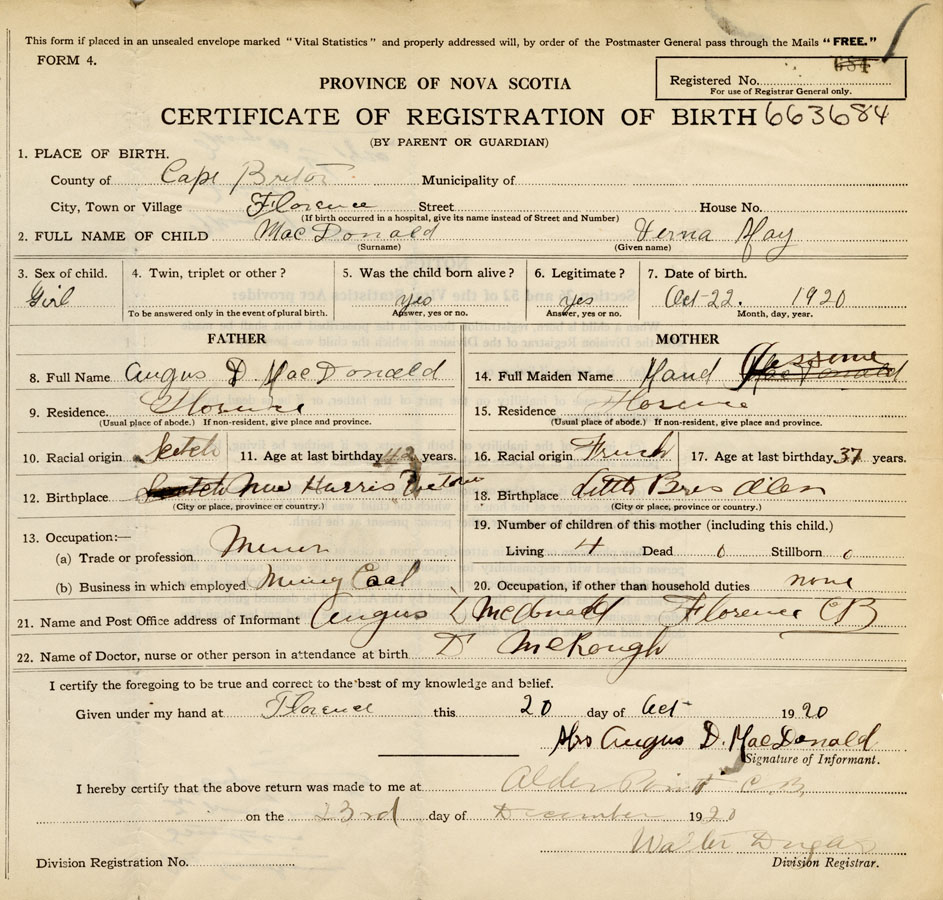 This form if placed in an unsealed envelope marked "Vital Statistics" and properly addressed will, by order of the Postmaster General pass through the Mails "FREE."
FORM 4.
Registered No. 684
For use of Registrar General only.
PROVINCE OF NOVA SCOTIA
CERTIFICATE OF REGISTRATION OF BIRTH 663684
(BY PARENT OR GUARDIAN)
1. PLACE OF BIRTH.
County of Cape Breton Municipality of
City, Town or Village Florence Street House No.
(If birth occurred in a hospital, give its name instead of Street and Number)
2. FULL NAME OF CHILD MacDonald Verna May
(Surname) (Given name)
3. Sex of child. 4. Twin, triplet or other? 5. Was the child born alive? 6. Legitimate? 7. Date of birth.
Girl yes yes Oct-22. 1920
To be answered only in the event of plural birth. Answer, yes or no. Answer, yes or no. Month, day, year.
FATHER MOTHER
8. Full Name Angus D MacDonald 14. Full Maiden Name MacDonald
9. Residence. Florence 15. Residence Florence
(Usual place of abode.) If non-resident, give place and province. (Usual place of abode.) If non-resident, give place and province.
10. Racial origin Scotch 11. Age at last birthday 42 years. 16. Racial origin French 17. Age at last birthday 37 years.
12. Birthplace Scotch Harris 18. Birthplace Little Bras
(City or place, province or country.) (City or place, province or country.)
19. Number of children of this mother (including this child.)
13. Occupation:—
(a) Trade or profession Miner Living 4 Dead 0 Stillborn 0
(b) Business in which employed Mining Coal 20. Occupation, if other than household duties none
21. Name and Post Office address of Informant Angus D McDonald Florence CB
22. Name of Doctor, nurse or other person in attendance at birth Dr McKeough
I certify the foregoing to be true and correct to the best of my knowledge and belief.
Given under my hand at Florence this 20 day of Oct 1920
Mrs Angus D. MacDonald
Signature of Informant.
I hereby certify that the above return was made to me at Alder Point C.B.
on the 23rd day of December 1920
Walter
Division Registration No. Division Registrar.